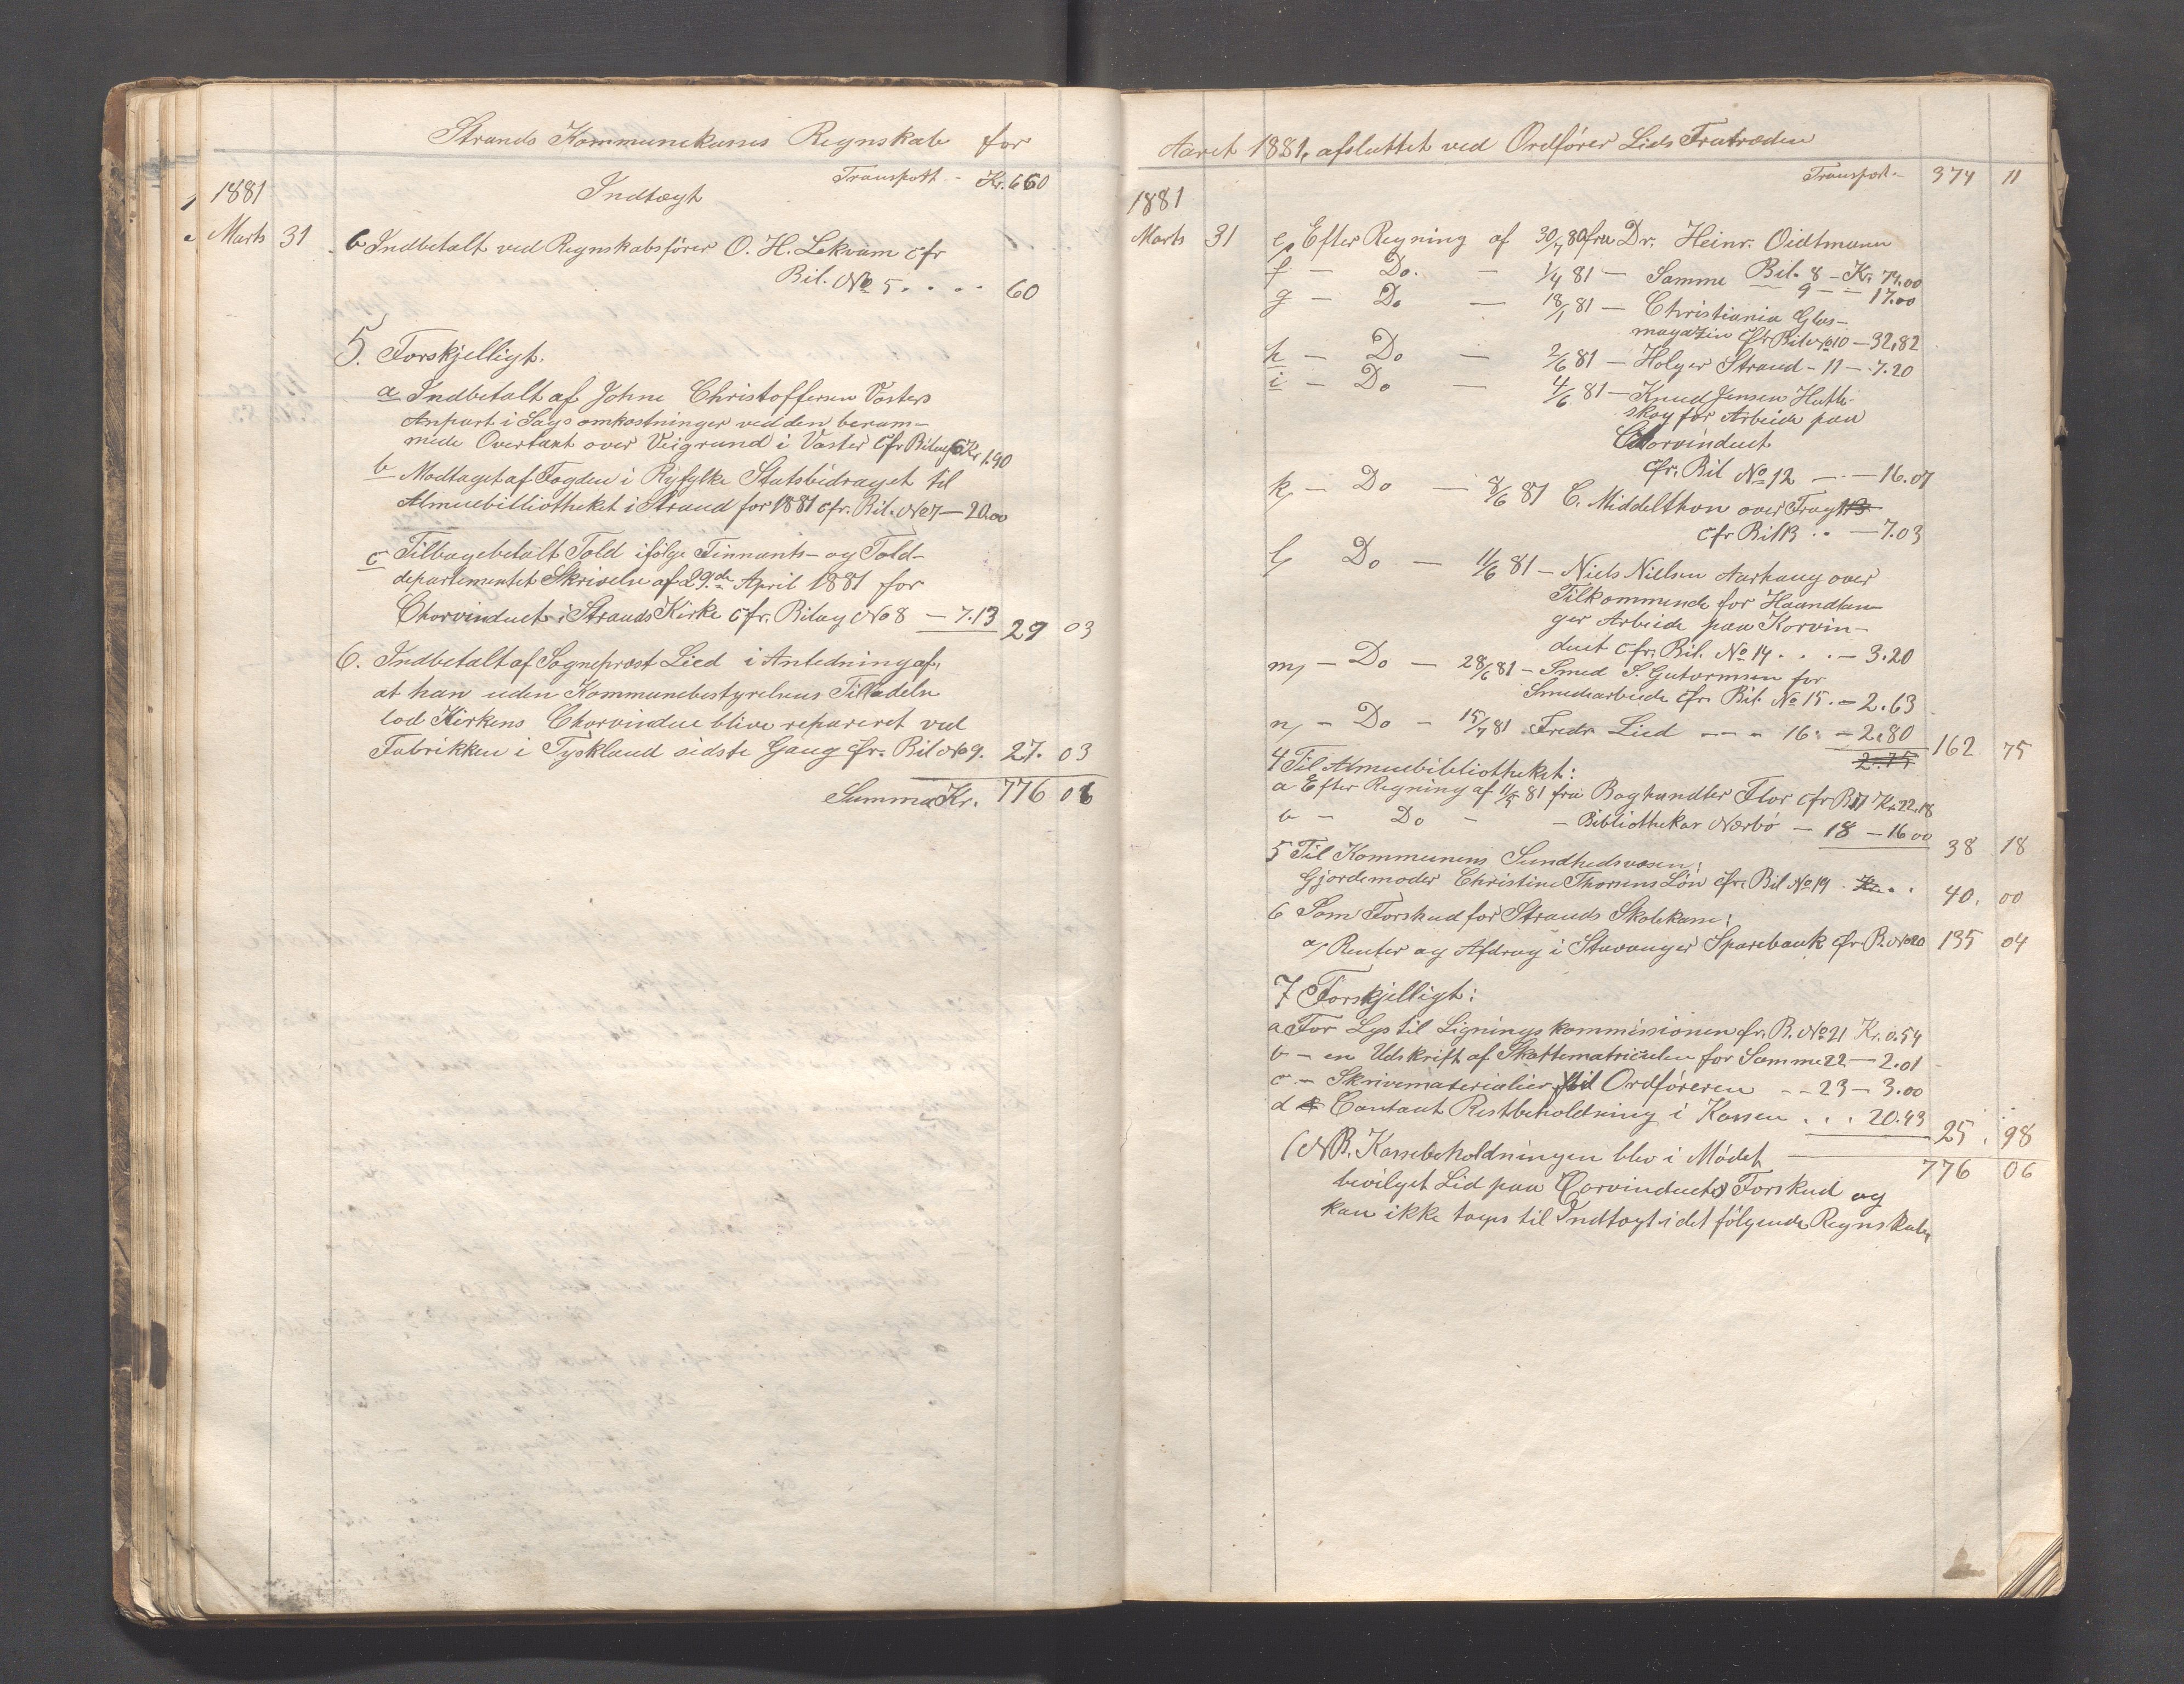 Strands Kommunekasses Regnskab for
Transport - Kr. 660
1881 Indtægt
Marts 31 b Indbetalt ved Regnskabsfører O. H. Lekvam cfr
Bil. No 5 . . . . 60
5. Forskjelligt.
a Indbetalt af Johne Christoffersen Vosters
Anpart i Sagsomkostninger ved den beram-
mede Overtaxt over Veigrund i Voster cfr Bilag 6 Kr 1.90
b Modtaget af Fogden i Ryfylke Statsbidraget til
Almuebibliotheket i Strand for 1881 cfr. Bil. No 7 — 20.00
c Tilbagebetalt Told ifølge Finnants- og Told-
departementet Skrivelse af 29.de April 1881 for
Chorvinduet i Strands Kirke cfr. Bilag No 8 — 7.13 29 03
6. Indbetalt af Sogneprest Lied i Anledning af,
at han uden Kommunebestyrelsens Tilladelse
lod Kirkens Chorvindue blive repareret ved
Fabrikken i Tyskland sidste Gang cfr. Bil No 9. 27. 03
Summa Kr. 776 06
Aaret 1881, afsluttet ved Ordfører Lieds Fratræden
Transport - 374 11
1881
Marts 31 e, Efter Regning af 30/7 80 fra Dr. Heinr. Oidtmann
Bil. 8 - Kr. 74.00
f — Do. — 1/4 81 — Samme 9 - - 17.00
g — Do — 18/1 81 — Christiania Glas-
magazin cfr Bil No 10 — 32,82
h — Do — 2/6 81 — Holger Strand - 11 — 7.20
i — Do — 4/6 81 — Knud Jensen Hatle-
skog for Arbeide paa
Chorvinduet
cfr. Bil No 12 — — 16.07
k, — Do — 8/6 81 C. Middelthon over Fragt 13
cfr Bil 13 . . — 7.03
l, Do — 11/6 81 — Niels Nielsen Aarhaug over
Tilkommende for Haandlan-
ger Arbeide paa Korvin-
duet cfr. Bil. No 14 . . . — 3.20
m, — Do — 28/6 81 — Smed S. Gutormsen for
Smedearbeide cfr. Bil. No 15. — 2.63
n, — Do — 15/7 81 Fredr. Lied — — - 16. — 2.80 162 75
2.75
4 Til Almuebibliotheket:
a Efter Regning af 11/3 81 fra Boghandler Flor cfr B 17 Kr. 22.18
b — Do — — Bibliothekar Nærbø — 18 — 16 00 38 18
5 Til Kommunens Sundhedsvæsen:
Gjordemoder Christine Thorsens Løn cfr. Bil No 19 . Kr. . 40. 00
6 Som Forskud for Strands Skolekasse:
a, Renter og Afdrag i Stavanger Sparebank cfr B. No 20 135 04
7 Forskjelligt:
a For Lys til Ligningskommissionen cfr. B. No 21 Kr. 0.54
b — en Udskrift af Skattematriculen for Samme 22 — 2.01
c — Skrivematerialier til Ordføreren - - 23 — 3.00
d Contant Restbeholdning i Kassen . . . 20.43 25. 98
(NB. Kassebeholdningen blev i Mødet 776 06
bevilget Lied paa Corvinduets Forskud og
kan ikke tages til Indtægt i det følgende Regnskab,